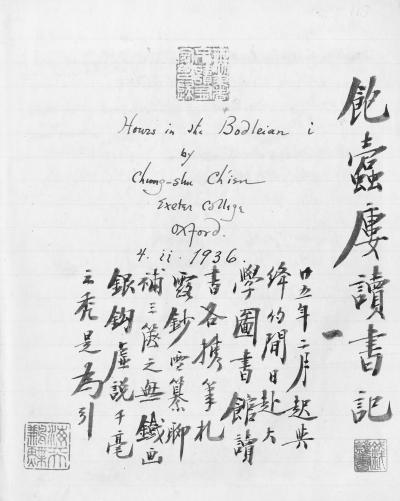 Hours in the Bodleian i
by
Chung-shu Ch'ien
Exeter College
Oxford.
4. ii. 1936.
飽蠹廔讀書記
一
廿五年二月起與
絳約間日赴大
學圖書館讀
書各攜筆札
露鈔雪纂聊
補三篋之無鐵画
銀鉤虛說千毫
之禿是為引